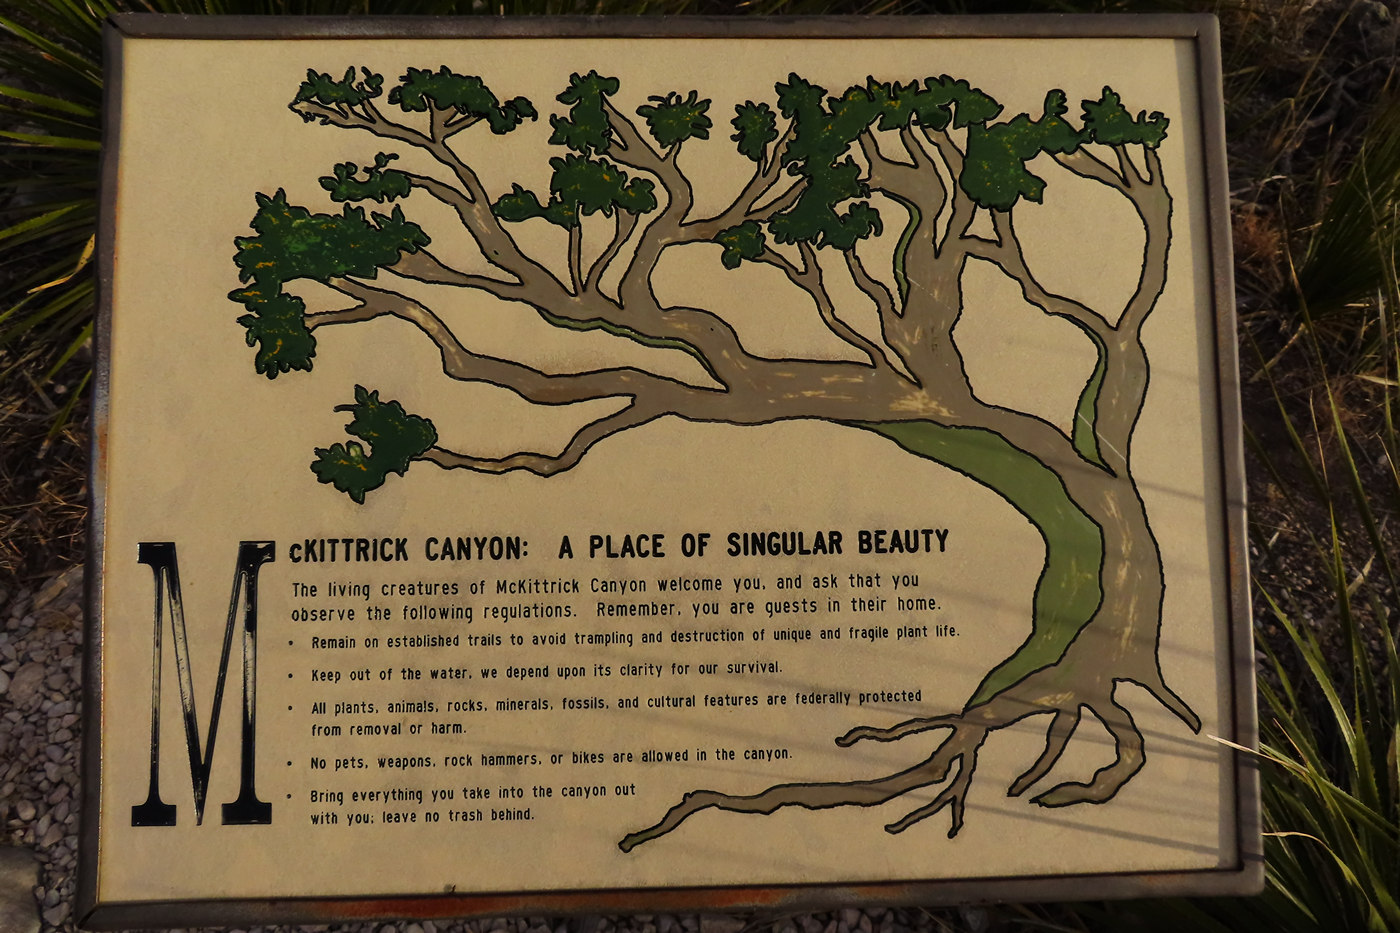 McKITTRICK CANYON: A PLACE OF SINGULAR BEAUTY
The living creatures of McKittrick Canyon welcome you, and ask that you
observe the following regulations. Remember, you are guests in their home.
• Remain on established trails to avoid trampling and destruction of unique and fragile plant life.
• Keep out of the water, we depend upon its clarity for our survival.
• All plants, animals, rocks, minerals, fossils, and cultural features are federally protected
from removal or harm.
• No pets, weapons, rock hammers, or bikes are allowed in the canyon.
• Bring everything you take into the canyon out
with you; leave no trash behind.